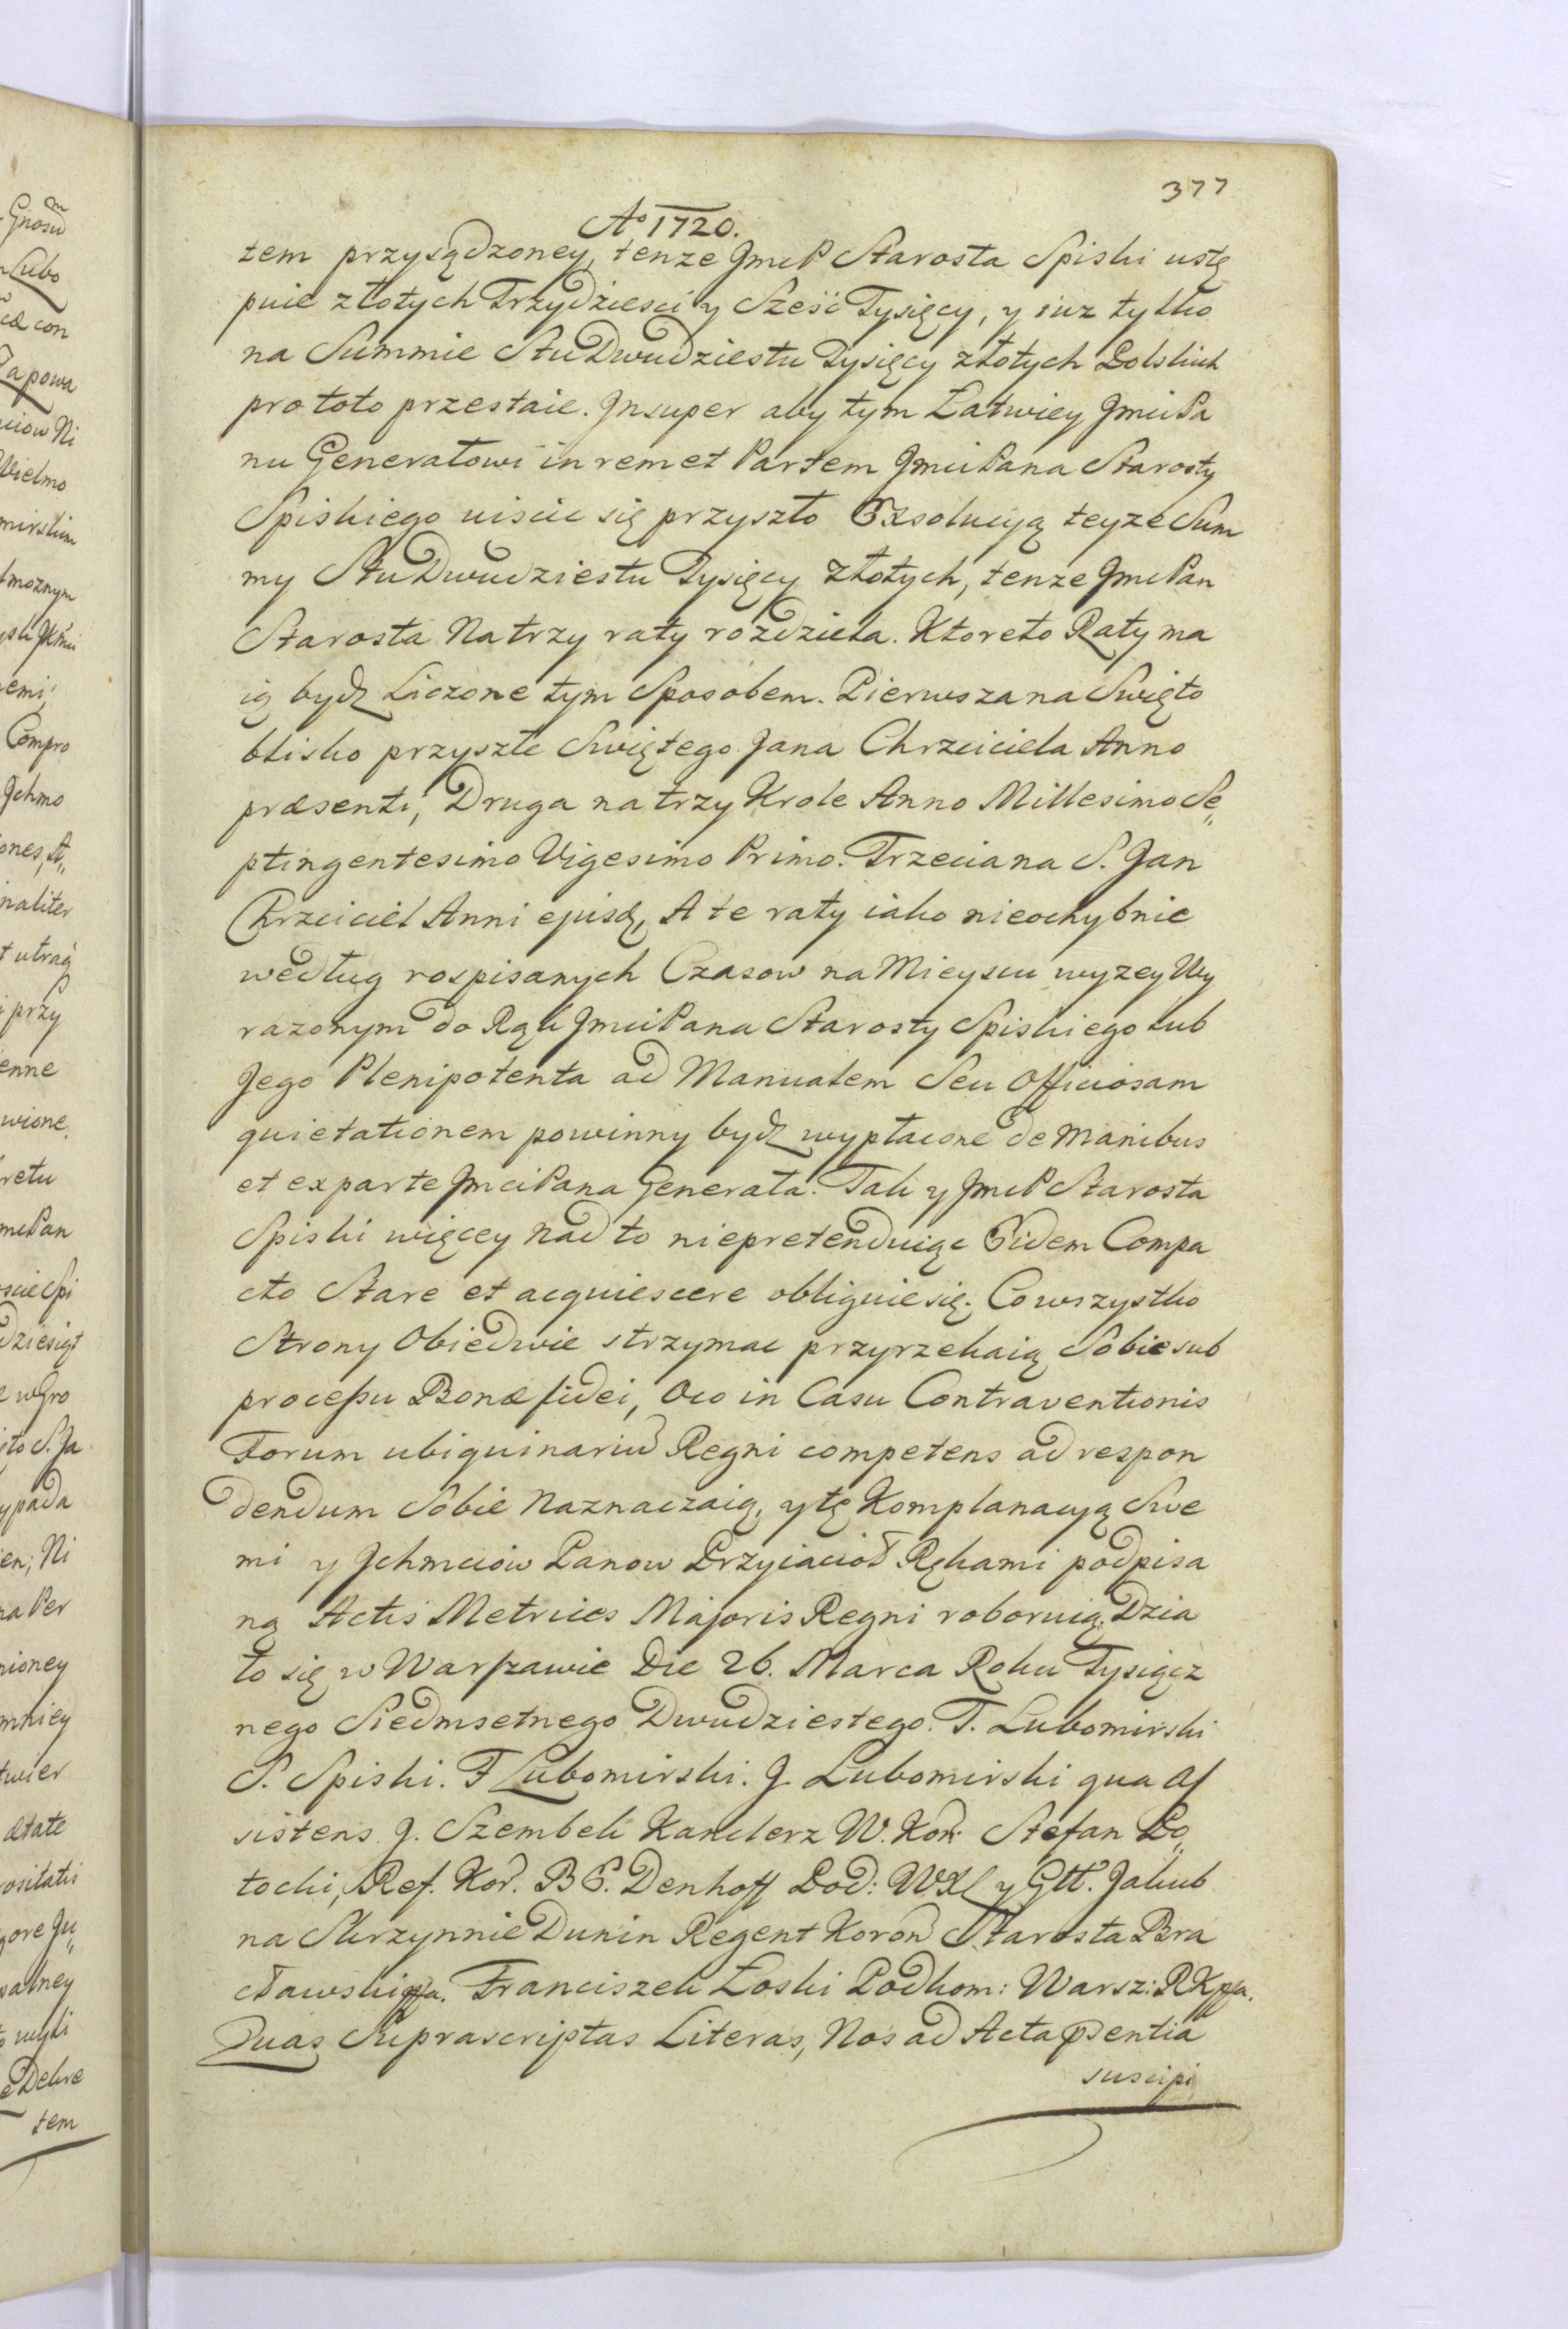 377
Aº 1720.
tem przysądzoney, tenze JmcP Starosta Spiski ustę
puie złotych Trzydziesci y Sześć Tysięcy, y iuz tylko
na Summie Stu Dwudziestu Tysięcy złotych Polskich
pro toto przestaie. Jnsuper aby tym Łatwiey JmciPa
nu Generałowi in rem et Partem JmciPana Starosty
Spiskiego uiscic się przyszło Exsolucyą teyze Sum
my Stu Dwudziestu Tysięcy Złotych, tenze JmcPan
Starosta Na trzy raty rozdziela. Ktore to Raty ma
ią bydz Liczone tym Sposobem. Pierwsza na Swięto
blisko przyszłe Swiętego Jana Chrzciciela Anno
præsenti, Druga na trzy Krole Anno Millesimo Se„
ptingentesimo Vigesimo Primo. Trzecia na S. Jan
Chrzciciel Anni ejusd, A te raty iako nieochybnie
według rospisanych Czasow na Mieyscu wyzey Wy
razonym do Rąk JmciPana Starosty Spiskiego lub
Jego Plenipotenta ad Manualem Seu Officiosam
quietationem powinny bydz wypłacone de manibus
et ex parte JmciPana Generała. Tak y JmcP Starosta
Spiski więcey nad to niepretenduiąc Eidem Compa
cto Stare et acquiescere obliguie się. Co wszystko
Strony Obiedwie strzymac przyrzekaią Sobie sub
processu Bonæ fidei, Oco in Casu Contraventionis
Forum ubiquinariu Regni competens ad respon
dendum Sobie Naznaczaią, y tę Komplanacyą Swe
mi y Jchmciów Panow Przyiacioł Rękami podpisa
ną Actis Metrices Majoris Regni roboruią. Dzia
ło się w Warszawie Die 26. Marca Roku Tysiącz
nego Siedmsetnego Dwudziestego. T. Lubomirski
S. Spiski. F Lubomirski. J. Lubomirski qua As
sistens J. Szembek Kanclerz W. Kor. Stefan Po„
tocki, Ref. Kor. B P. Denhoff Pod: WXL y Gtt. Jakub
na Skrzynnie Dunin Regent Koron Starosta Bra
cławski mpa. Franciszek Łoski Podkom: Warsz: RK mpa.
Quas Suprascriptas Literas, Nos ad Acta psentia
suscipi